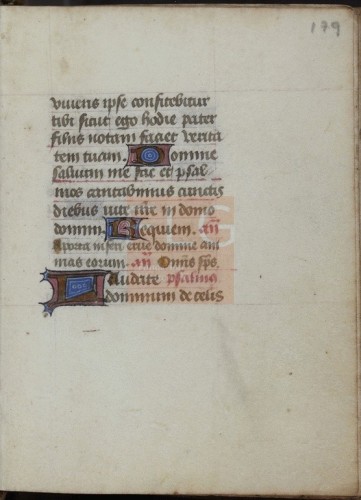 179
viuens ipse confitebitur
tibi sicut ego hodie pater
filijs notam faciet verita
tem tuam. Domine
saluum me fac et psal
mos cantabimus cunctis
diebus uite nr̃e in domo
domini. Requiem. an̄
A porta inferi erue domine ani
mas eorum. an̄ Om̄is sp̄s.
Laudate psalmus
dominum de celis